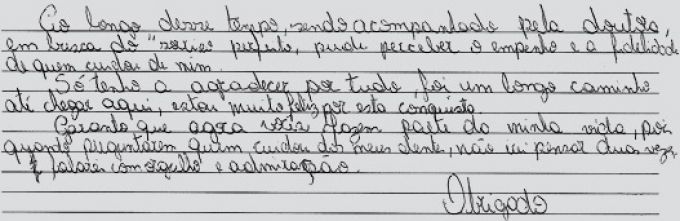 Ao longo desse tempo, sendo acompanhado pela doutora,
em busca do "sorriso perfeito, pude perceber o empenho e a fidelidade
de quem cuidou de mim.
Só tenho a agradecer por tudo, foi um longo caminho
até chegar aqui, estou muito feliz por esta conquista.
Garanto que agora fazem parte da minha vida, pois
quando perguntarem quem cuidou dos meus dente, não irei pensar duas vezes
e falarei com orgulho e admiração.
Obrigado